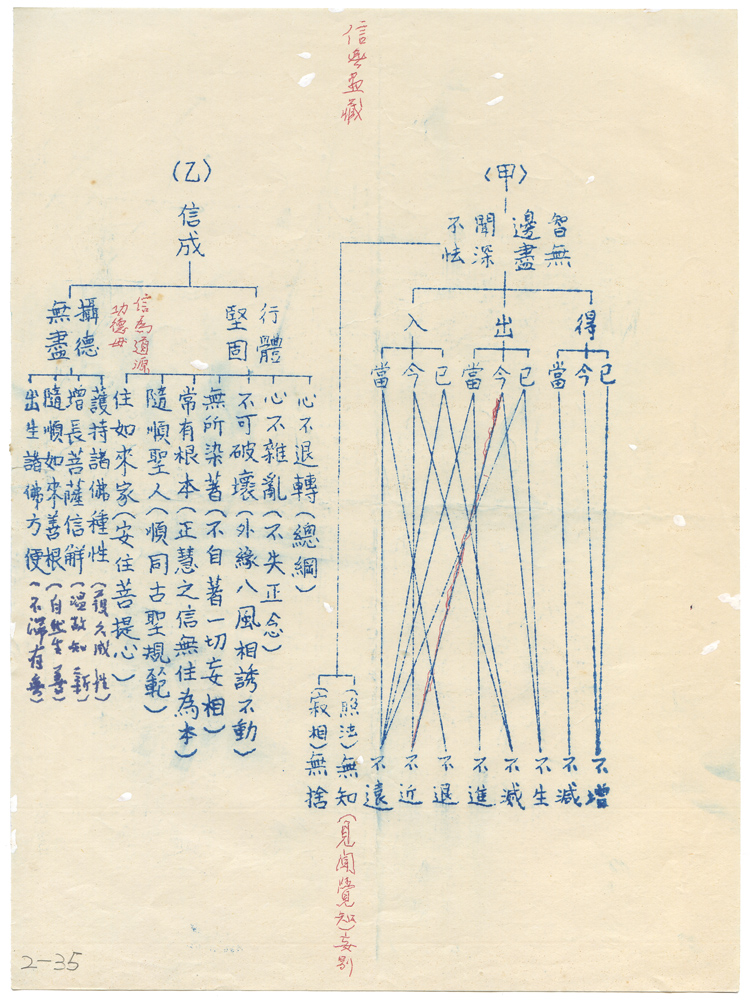 信無盡藏
(甲)
智無
邊盡
聞深
不怯
得
出
入
已
今
當
已
今
當
已
今
當
不增
不減
不生
不滅
不進
不退
不近
不遠
(照法)無知(見聞覺知)妄別
(寂相)無捨
(乙)
信成
行體
堅固
信為道源
功德母
攝德
無盡
心不退轉(總綱)
心不雜亂(不失正念)
不可破壞(外緣八風相誘不動)
無所染著(不自著一切妄相)
常有根本(正慧之信無住為本)
隨順聖人(順同古聖規範)
住如來家(安住菩提心)
護持諸佛種性
增長菩薩信解(溫故知新)
隨順如來善根(自然生善)
出生諸佛方便(不滯有無)
2-35